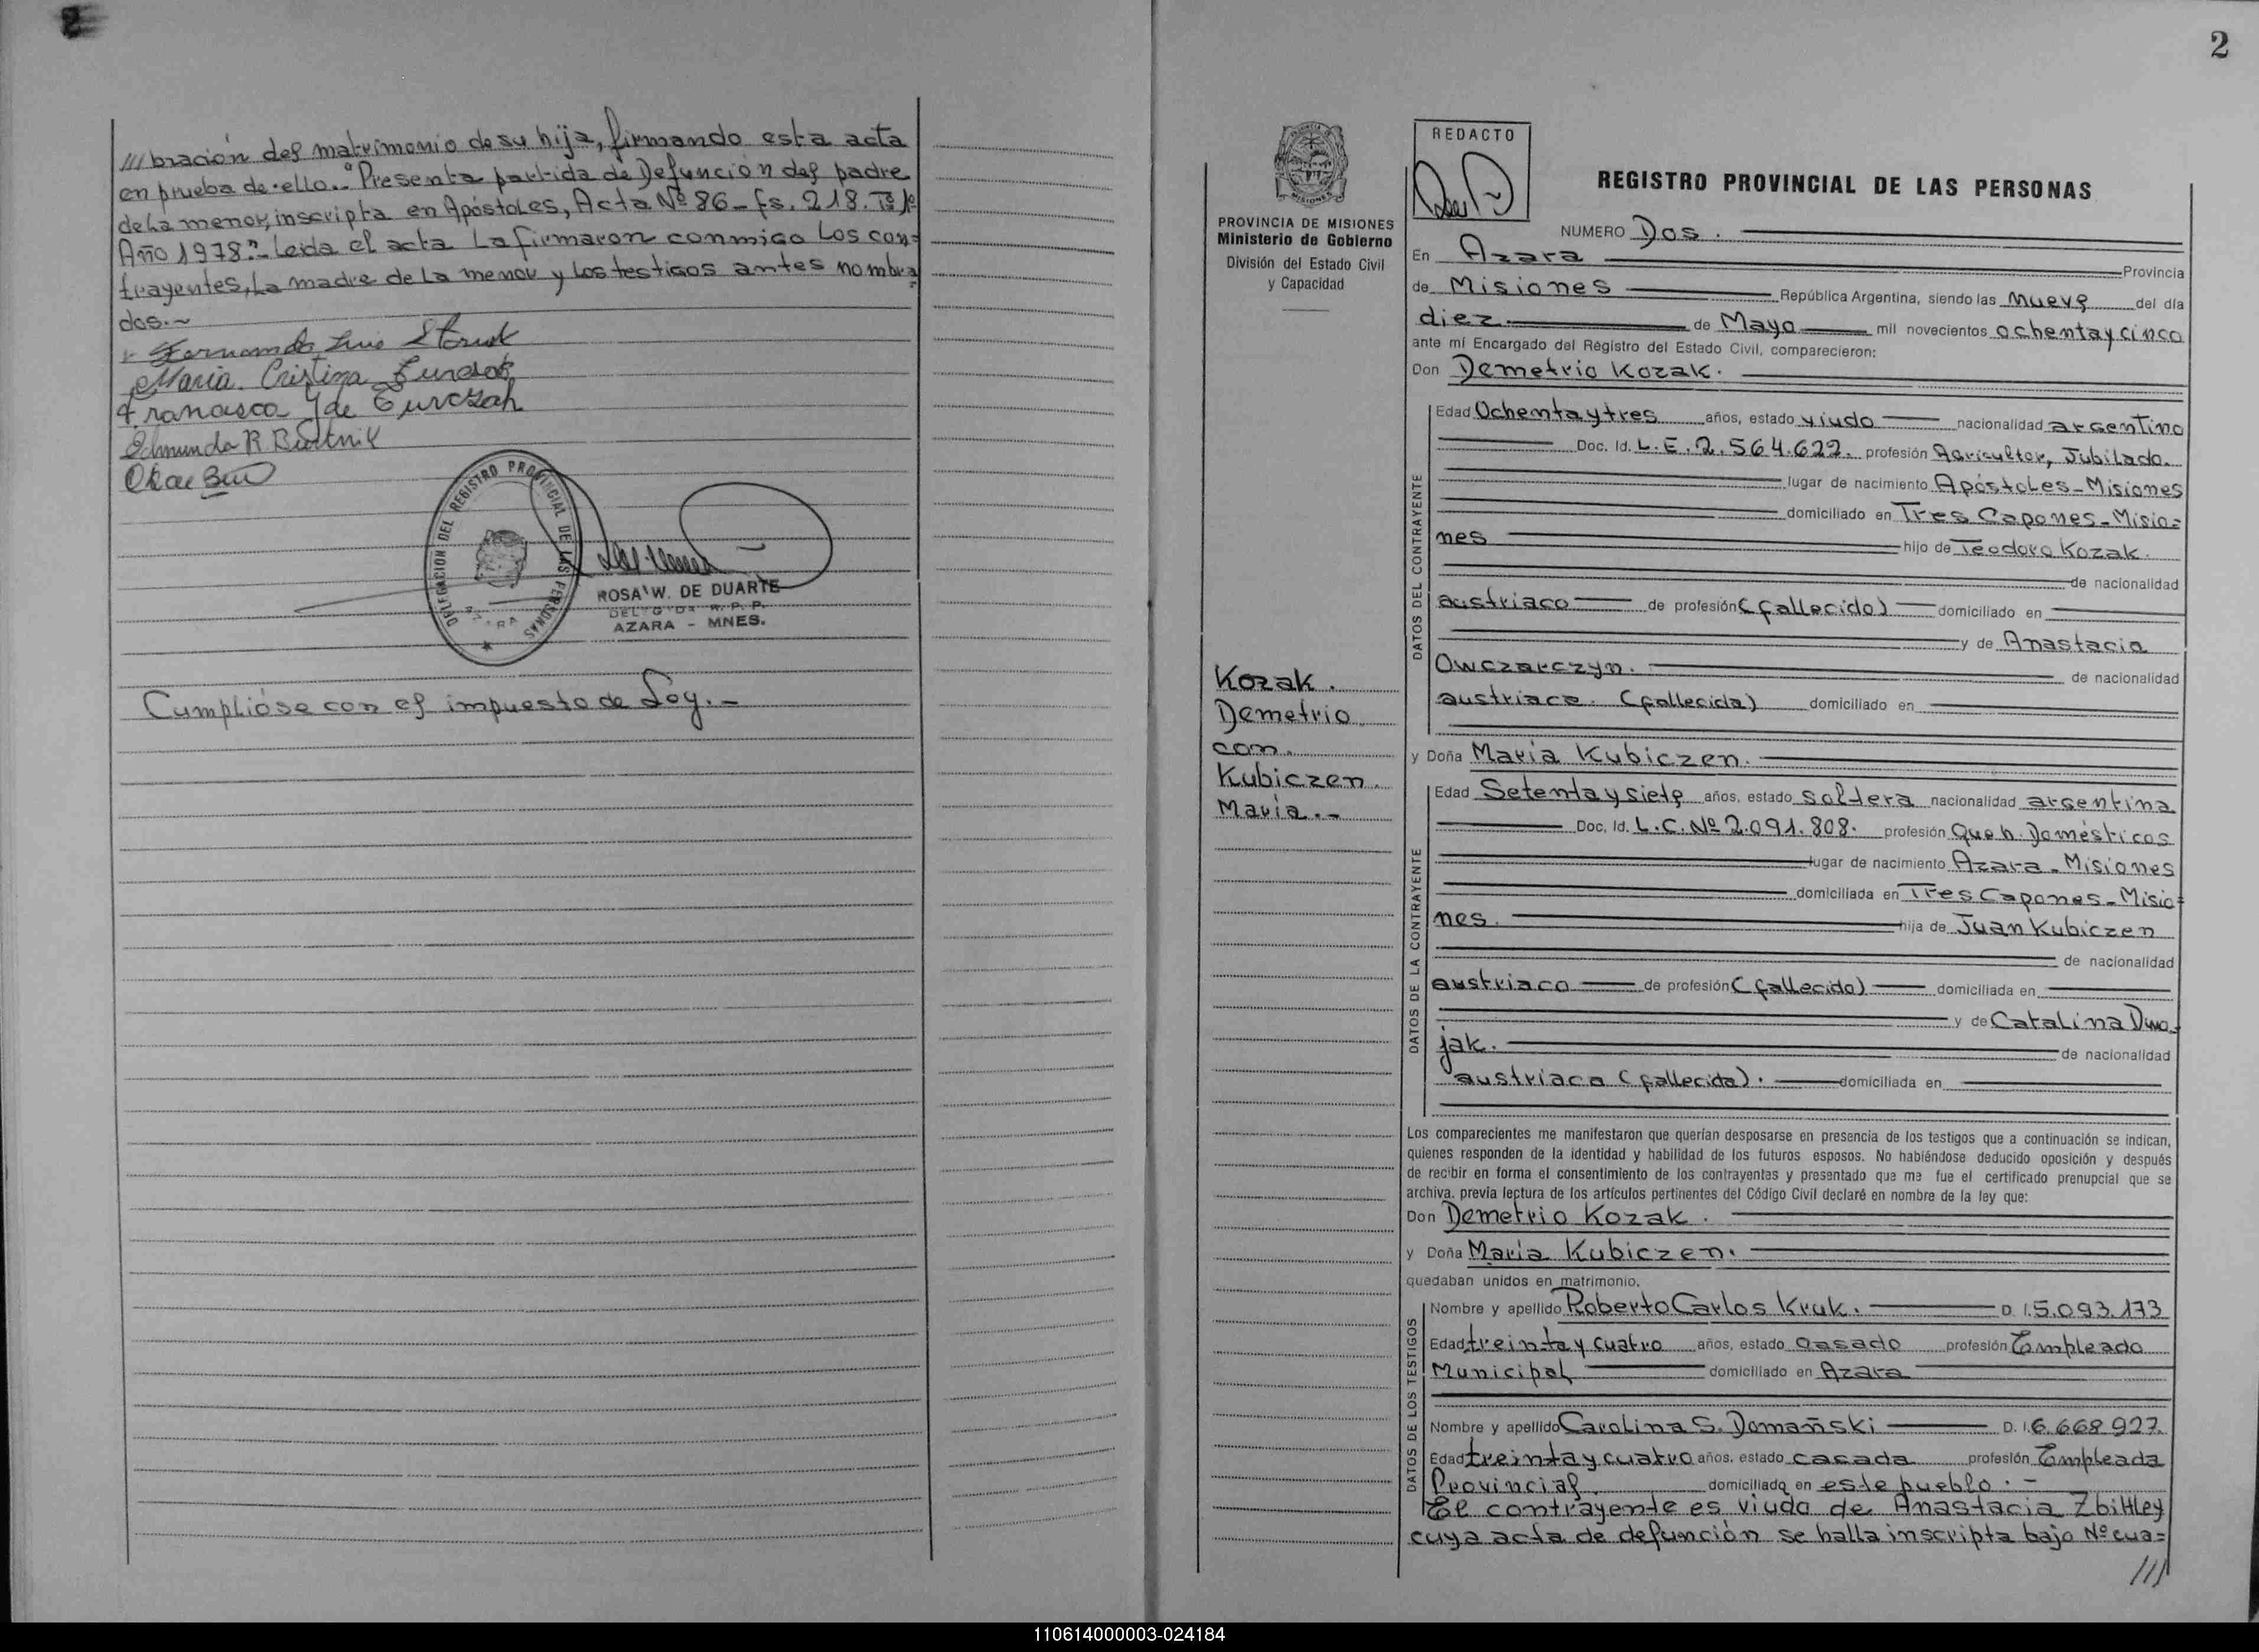 /// bración del matrimonio de su hija, firmando esta acta
en prueba de ello.- "Presenta partida de Defunción del padre
de la menor, inscripta en Apóstoles, Acta Nº 86 - fs. 218. Tº
Año 1978".- Leída el acta la firmaron conmigo los con=
trayentes, la madre de la menor y los testigos antes nombra=
dos.-
Fernando Luis
María Cristina
Francisca Y de Turczak
Edmundo R.
DELEGACION DEL REGISTRO PROVINCIAL DE LAS PERSONAS
AZARA
ROSA W. DE DUARTE
DELEGADA R. P. P.
AZARA - MNES.
Cumplióse con el impuesto de Ley.-
2
PROVINCIA DE MISIONES
Ministerio de Gobierno
División del Estado Civil
y Capacidad
Kozak.
Demetrio
con
Kubiczen
María.-
REDACTO
REGISTRO PROVINCIAL DE LAS PERSONAS
NUMERO Dos.
En Azara Provincia
de Misiones República Argentina, siendo las nueve del día
diez de Mayo mil novecientos ochenta y cinco
ante mí Encargado del Registro del Estado Civil, comparecieron:
Don Demetrio Kozak.
DATOS DEL CONTRAYENTE
Edad Ochenta y tres años, estado viudo nacionalidad argentino
Doc. Id. L.E. 2.564.622. profesión Agricultor, Jubilado.
lugar de nacimiento Apóstoles - Misiones
domiciliado en Tres Capones - Misio=
nes hijo de Teodoro Kozak.
de nacionalidad
austriaco de profesión (fallecido) domiciliado en
y de Anastacia
Owczarczyn. de nacionalidad
austriaca. (fallecida) domiciliado en
y Doña María Kubiczen.
DATOS DE LA CONTRAYENTE
Edad Setenta y siete años, estado soltera nacionalidad argentina
Doc. Id. L.C. Nº 2.091.808. profesión Queh. Domésticos
lugar de nacimiento Azara - Misiones
domiciliada en Tres Capones - Misio=
nes. hija de Juan Kubiczen
de nacionalidad
austriaco de profesión (fallecido) domiciliada en
y de Catalina Dwo-
jak. de nacionalidad
austriaca (fallecida). domiciliada en
Los comparecientes me manifestaron que querían desposarse en presencia de los testigos que a continuación se indican,
quienes responden de la identidad y habilidad de los futuros esposos. No habiéndose deducido oposición y después
de recibir en forma el consentimiento de los contrayentes y presentado que me fue el certificado prenupcial que se
archiva, previa lectura de los artículos pertinentes del Código Civil declaré en nombre de la ley que:
Don Demetrio Kozak.
y Doña María Kubiczen.
quedaban unidos en matrimonio.
DATOS DE LOS TESTIGOS
Nombre y apellido Roberto Carlos Kruk. D. I. 5.093.173
Edad treinta y cuatro años, estado casado profesión Empleado
Municipal domiciliado en Azara
Nombre y apellido Carolina S. Domañski D. I. 6.668.927.
Edad treinta y cuatro años, estado casada profesión Empleada
Provincial. domiciliado en este pueblo.-
El contrayente es viudo de Anastacia Zbihley
cuya acta de defunción se halla inscripta bajo Nº cua=
///
110614000003-024184